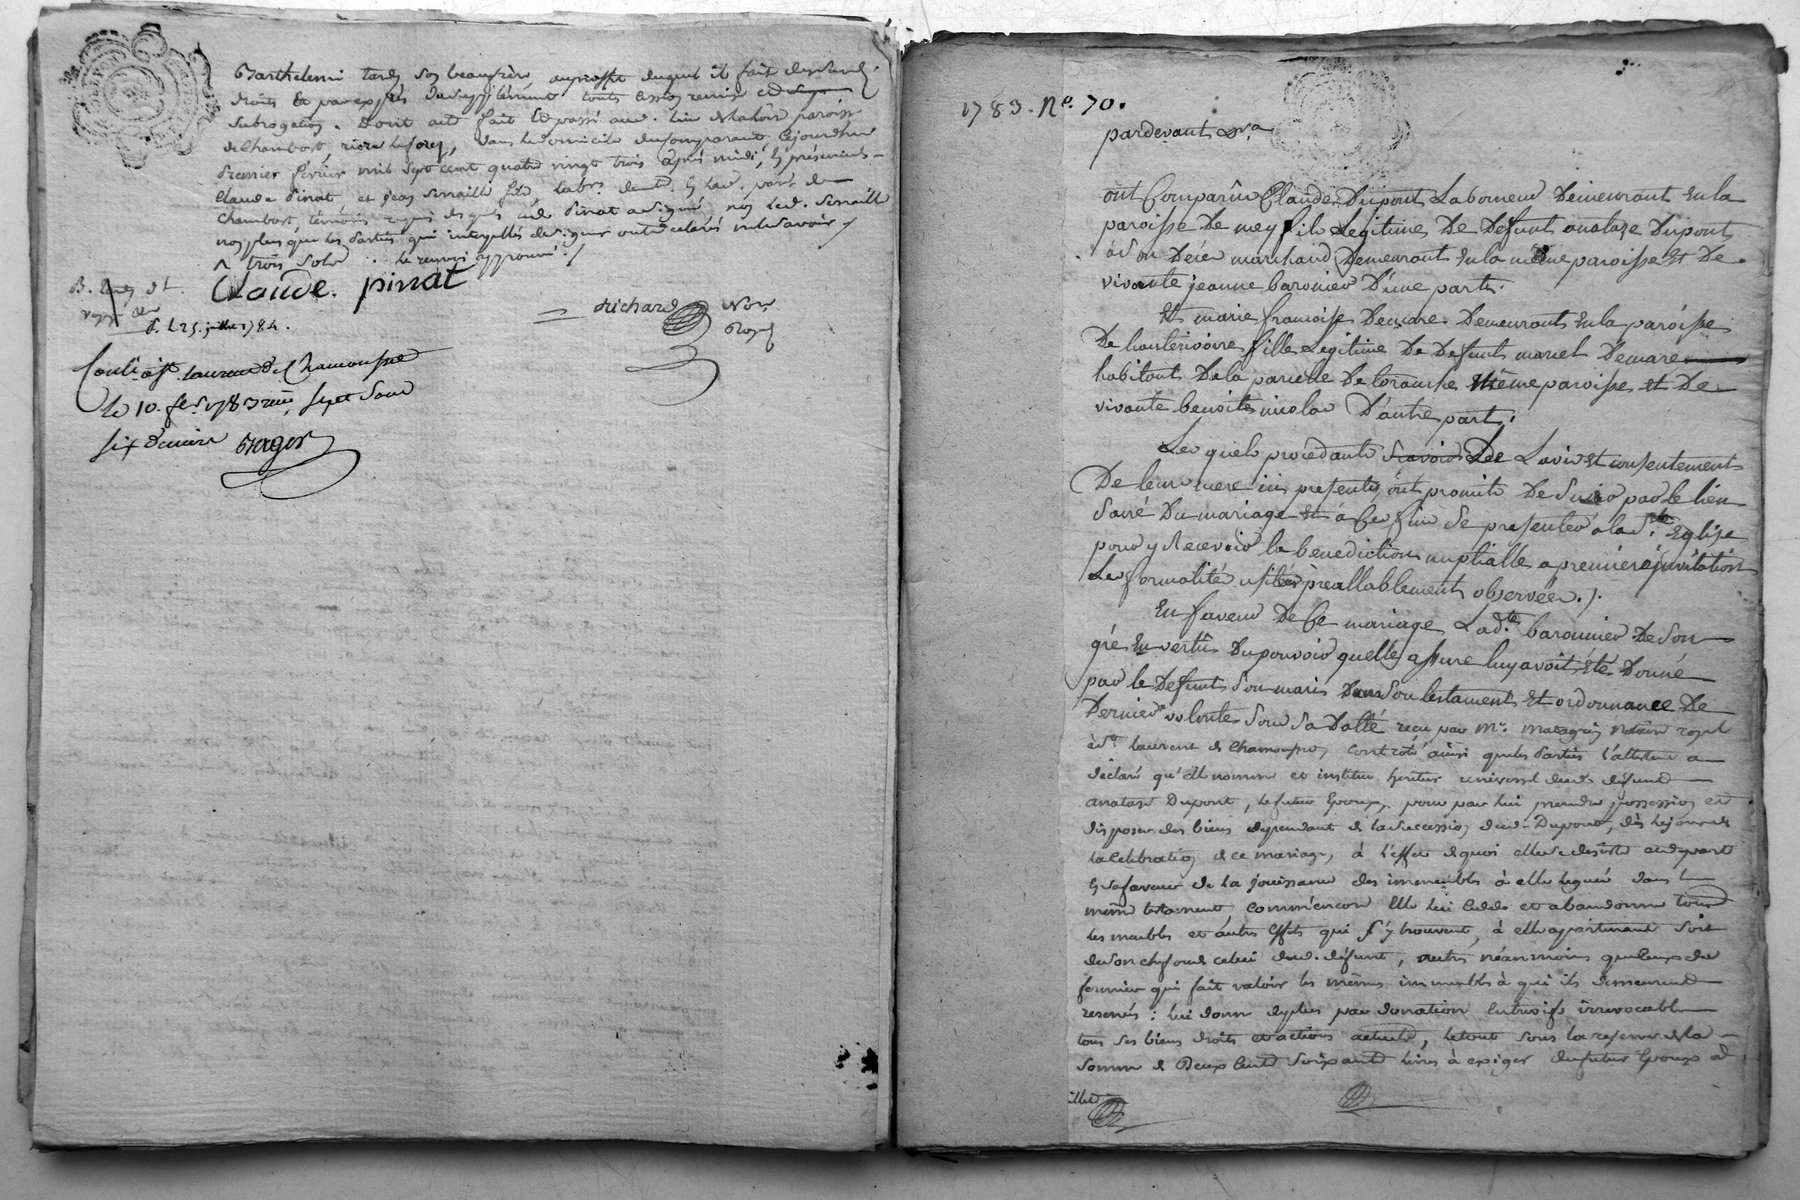 Barthelemi tardy son beaufrère, auproffit duquel il fait
droits et par exprès
subrogation. Dont acte fait et passé aud. lieu paroisse
de Chambost, dans le domicile du comparant, cejourdhui
premier fevrier mil sept cent quatre vingt trois après midi, En présence de
Claude Pinat, et Jean Senaille fils, labrs demt. En lad. parr. de
Chambost, témoins requis desquels led. Pinat a signé, non led. Senaille
non plus que les parties qui interpellés de signer ont declarés ne le savoir /
trois sols .. le renvoi approuvé /
Claude. pinat
Richard Nore
Royal
d. L 25. juillet 1784.
Conlé. à St. Laurent de Chamousset
le 10. fer. 1783 reçu sept sous
six deniers Berger
1783. No. 70.
pardevant &ra
ont Comparûs Claude Dupont Laboureur Demeurant En la
paroisse De mey fils Legitime De Defunt anataze Dupont
marchand Demeurant En la même paroisse Et De
vivante jeanne baronier D'une part.
Et marie françoise Demare Demeurant En la paroisse
De hauterivoire fille Legitime De Defunt Demare
habitant De la parcelle De même paroisse Et De
vivante benoite nicolas D'autre part.
Les quels procedants De L'avis Et consentement
De leurs mere ici presentes, ont promits De S'unir par le lien
Sacré Du mariage Et à Ces fins Se presenter à la d. Ste. Eglise
pour y Recevoir la benediction nuptialle a premiere invitation
Les formalités usitées préallablement observées. /.
En faveur De Ce mariage Lad.te baronnier De Son
gré En vertû Du pouvoir quelle assure luy avoit Eté Donné
par le Defunt Son mari Dans Son testament Et ordonnance De
Derniere volonté Sous Sa Datte reçu par Me. Matagrin Notaire royal
à St. Laurent de Chamousset, controlé ainsi que les Parties l'attestent a
déclaré qu'elle nomme et institue heritier universel dud. défunt
anataze Dupont, le futur Epoux, pour par lui prendre possession et
disposer des biens dependant de la Succession dud. Dupont, dès le jour de
la Celebration de ce mariage, à l'effet de quoi elle se desiste et depart
En sa faveur de la jouissance des immeubles à elle legués dans le
même testament, comme encore Elle lui Cedde et abandonne tous
les meubles et autres effets qui s'y trouvent, à elle apartenant soit
de son chef ou de celui dud. défunt, autres néanmoins que ceux du
fermier qui fait valoir les mêmes immeubles à qui ils demeurent
reservés : lui donne de plus par donation Entrevifs irrevocable
tous ses biens droits et actions actuels, le tout sous la reserve de la
somme de Deux Cent Soixante livres à exiger du futur Epoux